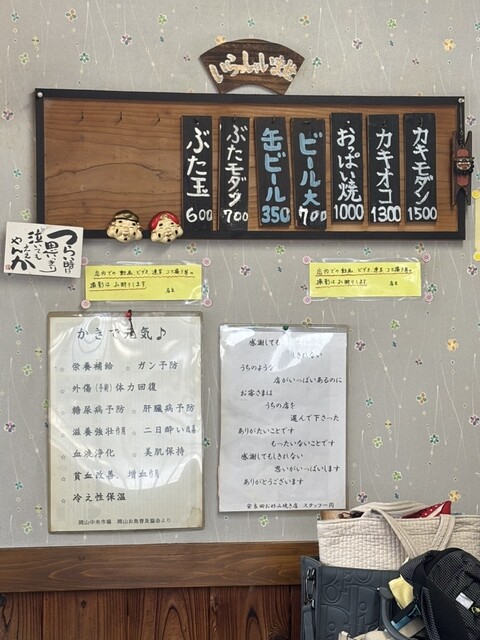 いらっしゃいませ
カキモダン 1500
カキオコ 1300
おっぱい焼 1000
ビール大 700
缶ビール 350
ぶたモダン 700
ぶた玉 600
つらい時は
思いきり
泣いたらえ
やんか
店内での動画 ビデオ
撮影はお断りします 店主
店内での動画 ビデオ
撮影はお断りします 店主
かきで元気♪
栄養補給 ガン予防
外傷(手術)体力回復
糖尿病予防 肝臓病予防
滋養強壮作用 二日酔い改善
血液浄化 美肌保持
貧血改善 増血作用
冷え性保温
岡山中央市場 岡山お魚普及協会より
感謝しても
しきれない
うちのような
店がいっぱいあるのに
お客さまは
うちの店を
選んで下さった
ありがたいことです
もったいないことです
感謝してもしきれない
思いがいっぱいします
ありがとうございます
お好み焼き店 スタッフ一同